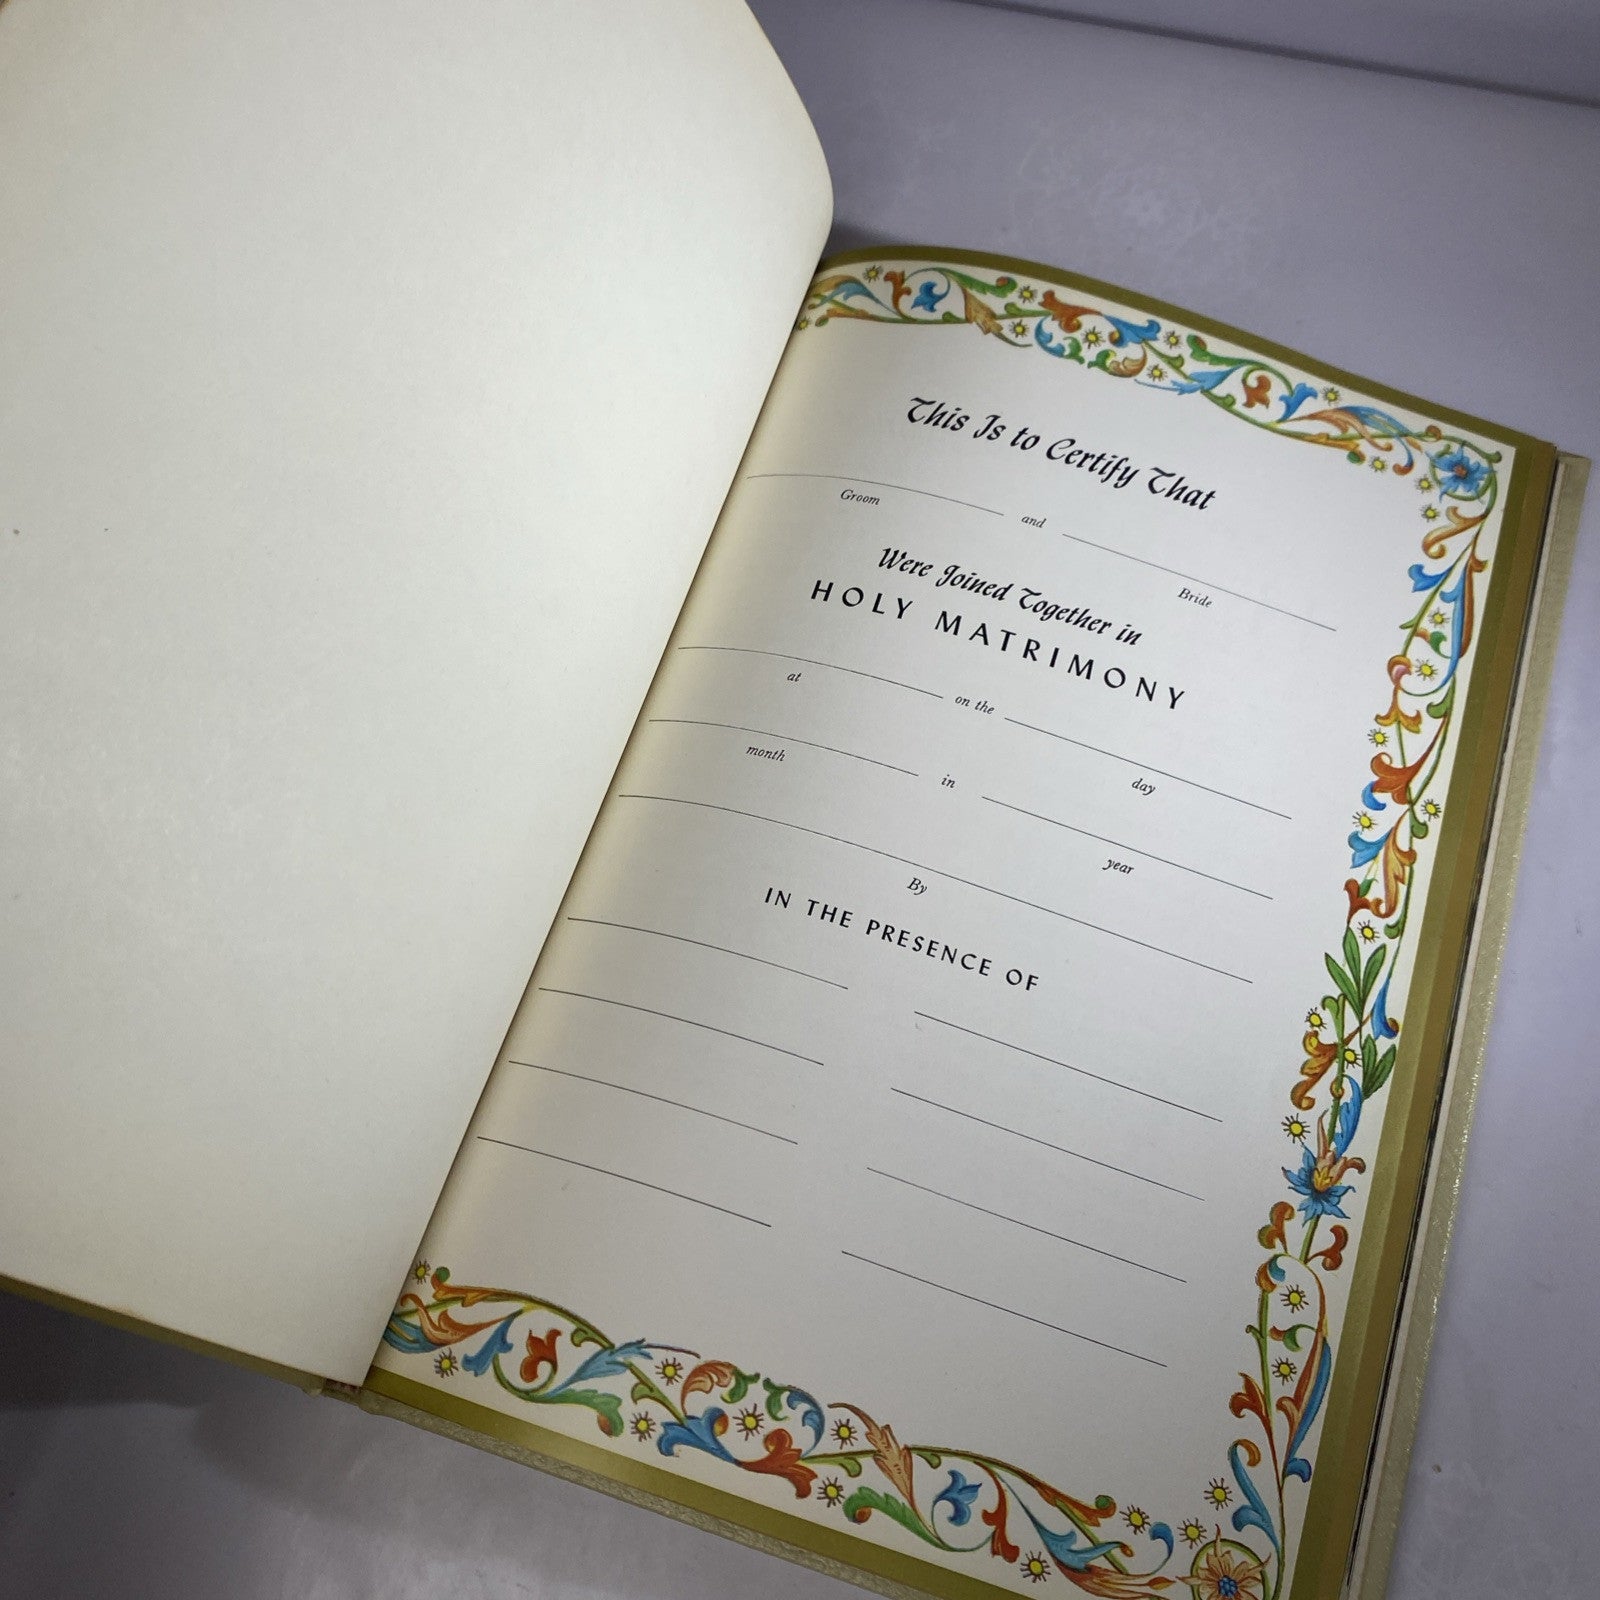 This Is to Certify That
Groom and Bride
Were Joined Together in
HOLY MATRIMONY
at on the day
month in year
By
IN THE PRESENCE OF